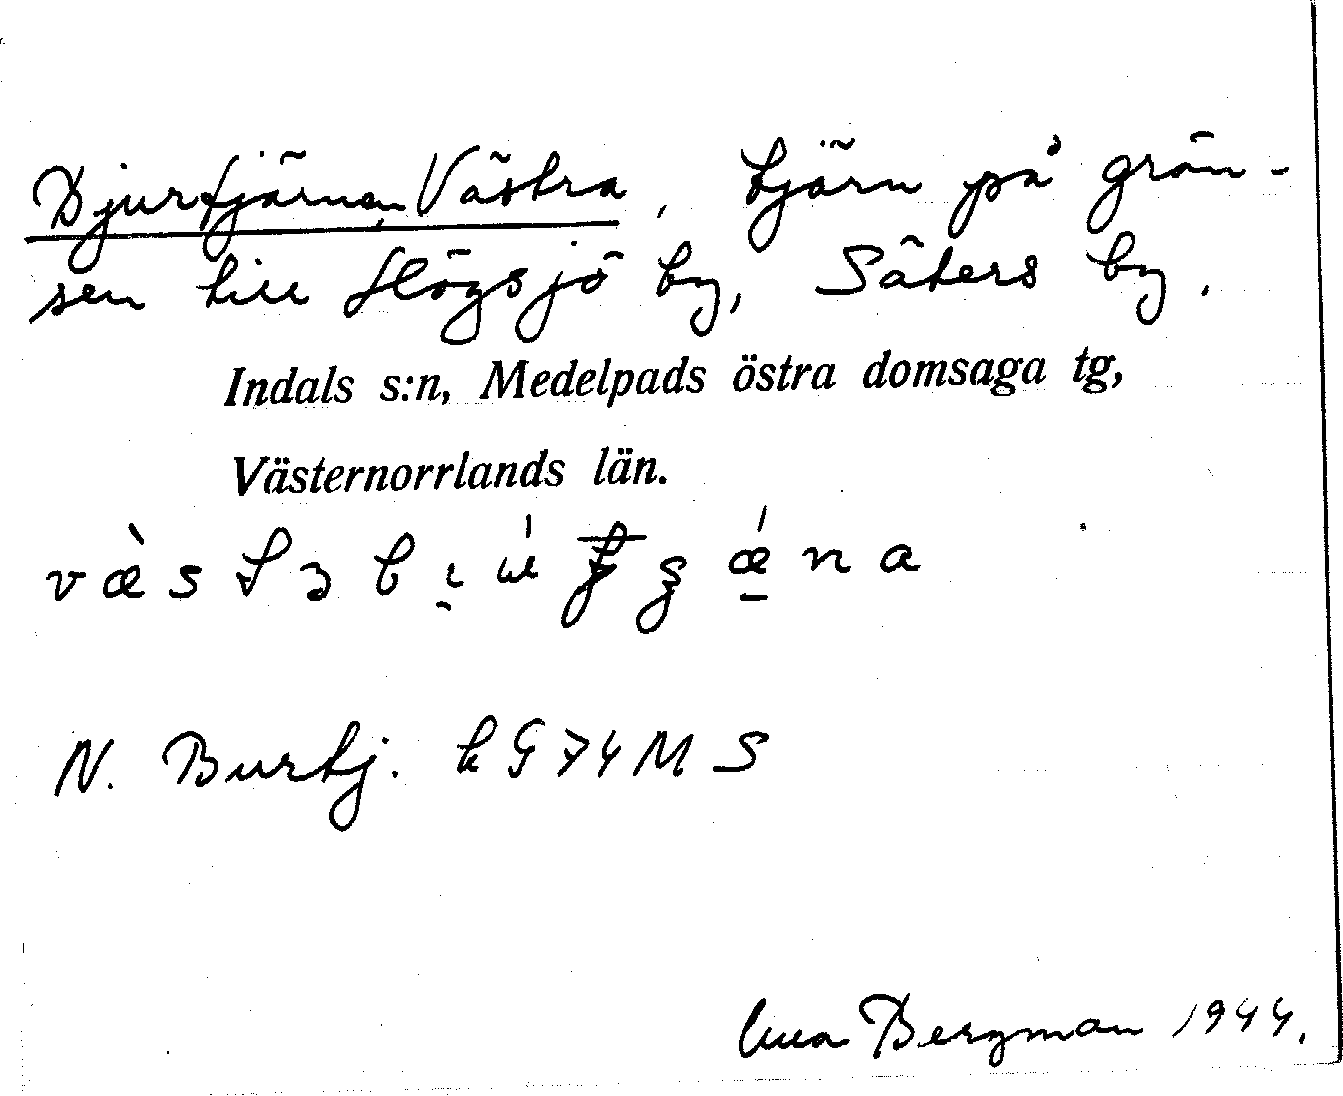 Djurtjärnen, Västra, tjärn på grän-
sen till Högsjö by, Säters by.
Indals s:n, Medelpads östra domsaga tg,
Västernorrlands län.
N. Burtj. k G 74 M S
Bergman 1944.